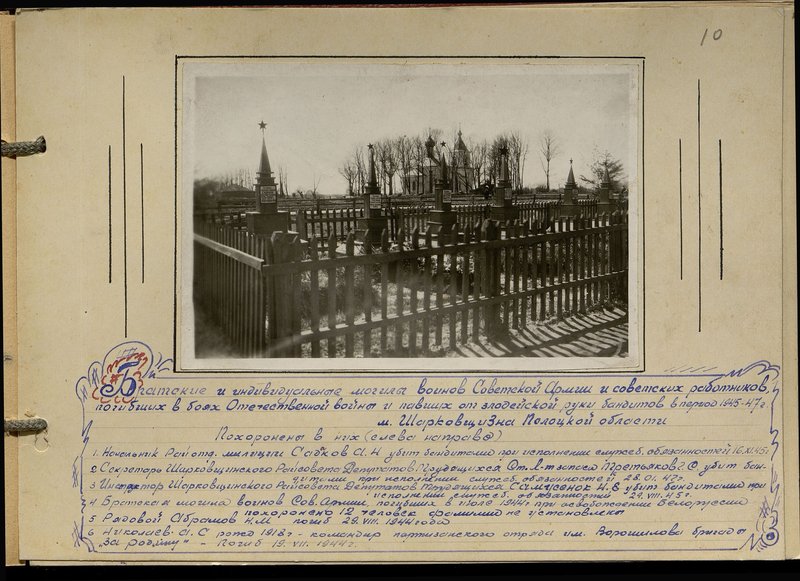 10
Братские и индивидуальные могилы воинов Советской Армии и советских работников,
погибших в боях Отечественной войны и павших от злодейской руки бандитов в период 1945-47г.
м. Шарковщизна Полоцкой области
Похоронены в них (слева направо)
1. Начальник Райотд. милиции Садков А.И убит бандитами при исполнении служеб. обязанностей 16.XI.45г
2 Секретарь Шарковщинского Райсовета Депутатов Трудящихся Ст. л-т запаса Третьяков Г.С убит бан-
дитами при исполнении служеб. обязанностей 28.01.47г.
3 Шарковщинского Райсовета Депутатов Трудящихся Самасенок Н.В убит бандитами при
исполнении служеб. обязанностей 29.VIII.45г.
4 Братская могила воинов Сов. Армии, погибших в июле 1944г при освобождении Белоруссии
похоронено 12 человек фамилии не установлены
5 Рядовой Абрамов Н.М погиб 29.VIII.1944 года
6 Николаев А.С рожд 1918г - командир партизанского отряда им. Ворошилова бригады
"За родину" - Погиб 19.VII.1944г.